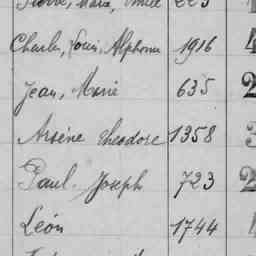 Pierre, Marx, Emile 223
Charles, Louis, Alphonse 1916 4
Jean, Marie 635 2
Arsène Théodore 1358 3
Paul Joseph 723 2
Léon 1744 4